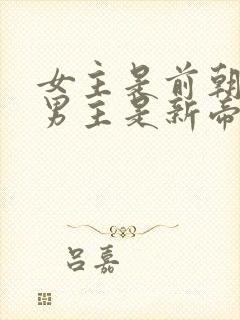 女主是前朝
男主是新帝
吕嘉